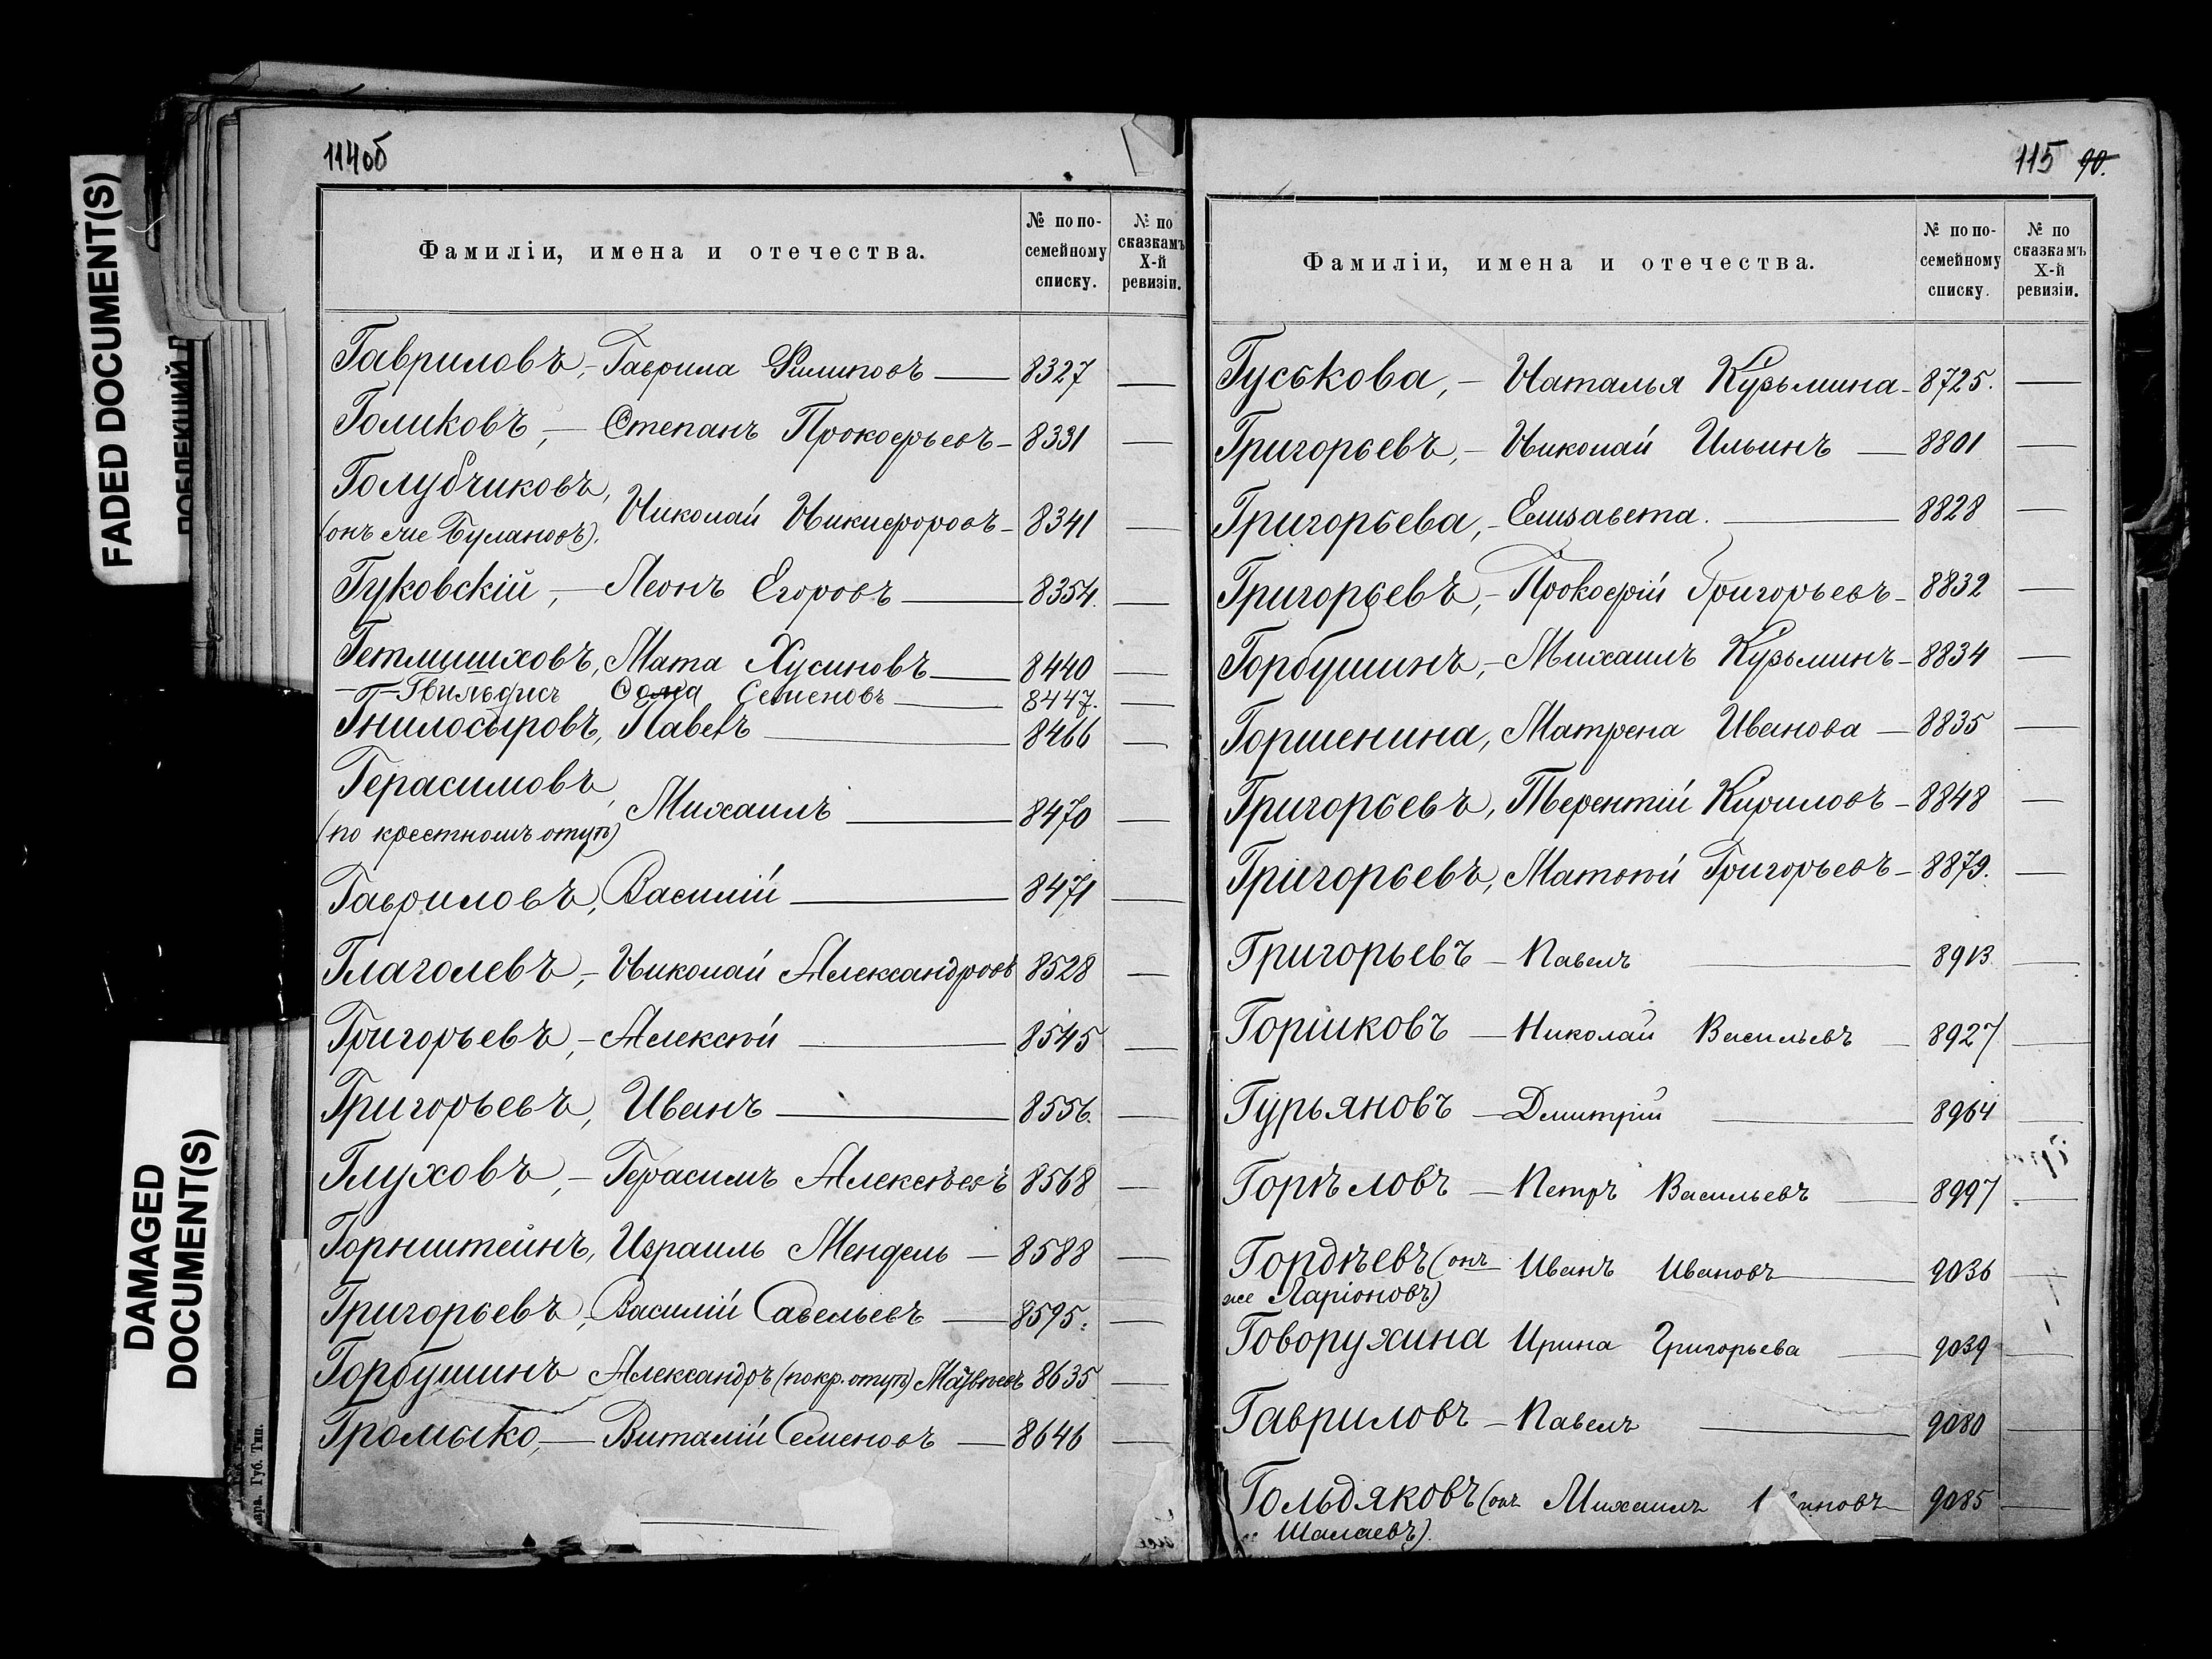 114об
Фамиліи, имена и отечества.
№ по по-
семейному
списку.
№ по
сказкамъ
X-й
ревизіи.
Гавриловъ, — Гаврила Филиповъ — 8327 —
Голиковъ, — Степанъ Прокофьевъ — 8331 —
Голубчиковъ,
(онъ же Булановъ). Николай Никифоровъ — 8341 —
Гуковскій, — Леонъ Егоровъ — 8354. —
Гетлишиховъ, Мата Хусиновъ — 8440 —
Гвильдисъ Семеновъ — 8447. —
Гнилосыровъ, Павелъ — 8466 —
Герасимовъ,
(по крестномъ отцѣ) Михаилъ — 8470 —
Гавриловъ, Василій — 8471 —
Глаголевъ, — Николай Александровъ 8528 —
Григорьевъ, — Алексѣй — 8545 —
Григорьевъ, Иванъ — 8556. —
Глуховъ, — Герасимъ Алексѣевъ 8568 —
Горнштейнъ, Израиль Мендель — 8588 —
Григорьевъ, Василій Савельевъ — 8595. —
Горбушинъ Александръ (по кр. отцѣ) Матвѣевъ 8635 —
Громыко, — Виталій Семеновъ — 8646 —
115 90.
Фамиліи, имена и отечества.
№ по по-
семейному
списку.
№ по
сказкамъ
X-й
ревизіи.
Гуськова, — Наталья Кузьмина — 8725. —
Григорьевъ, — Николай Ильинъ — 8801 —
Григорьева, — Елизавета. — 8828 —
Григорьевъ, — Прокофій Григорьевъ — 8832 —
Горбушинъ, — Михаилъ Кузьминъ — 8834 —
Горшенина, Матрена Иванова — 8835 —
Григорьевъ, Терентій Кириловъ — 8848 —
Григорьевъ, Матвѣй Григорьевъ — 8879. —
Григорьевъ — Павелъ — 8913 —
Горшковъ — Николай Васильевъ — 8927 —
Гурьяновъ — Дмитрій — 8964 —
Горѣловъ — Петръ Васильевъ — 8997 —
Гордѣевъ (онъ Иванъ Ивановъ — 9036 —
же Ларіоновъ)
Говорухина Ирина Григорьева — 9039 —
Гавриловъ — Павелъ — 9080 —
Гольдяковъ (онъ Михаилъ — 9085 —
Шалаевъ).
FADED DOCUMENT(S)
DAMAGED
DOCUMENT(S)
Губ. Тип.